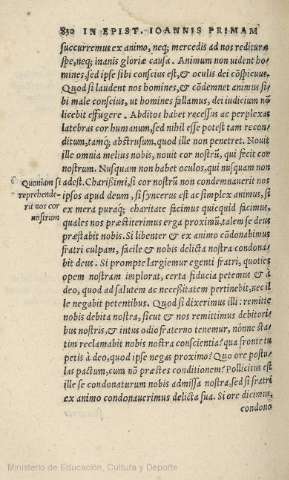 830 IN EPIST. IOANNIS PRIMAM
succurremus ex animo, neq; mercedis ad nos redituræ
spe, neq; inanis gloriæ causa. Animum non uident homines,
sed ipse sibi conscius est, & oculis dei cōspicuus.
Quod si laudent nos homines, & cōdemnet animus sibi
male conscius, ut homines fallamus, dei iudicium nō
licebit effugere. Abditos habet recessus ac perplexas
latebras cor humanum, sed nihil esse potest tam reconditum,
tamq; abstrusum, quod ille non penetret. Nouit
ille omnia melius nobis, nouit cor nostrū, qui fecit cor
nostrum. Nusquam non habet oculos, qui nusquam non
Quoniam si
reprehenderit
nos cor
nostrum
adest. Charissimi, si cor nostrū non condemnauerit nos
ipsos apud deum, si syncerus est ac simplex animus, si
ex mera puraq; charitate facimus quicquid facimus,
quales nos præstiterimus erga proximū, talem se deus
præstabit nobis. Si libenter & ex animo cōdonabimus
fratri culpam, facile & nobis delicta nostra condonabit
deus. Si prompte largiemur egenti fratri, quoties
opem nostram implorat, certa fiducia petemus & à
deo, quod ad salutem ac necessitatem pertinebit, nec ille
negabit petentibus. Quod si dixerimus illi: remitte
nobis debita nostra, sicut & nos remittimus debitoribus
nostris, & intus odio fraterno tenemur, nonne statim
reclamabit nobis nostra conscientia? qua fronte tu
petis à deo, quod ipse negas proximo? Quo ore postulas
pactum, cum nō præstes conditionem? Pollicitus est
ille se condonaturum nobis admissa nostra, sed si fratri
ex animo condonauerimus delicta sua. Si ore dicimus,
condono
Ministerio de Educación, Cultura y Deporte